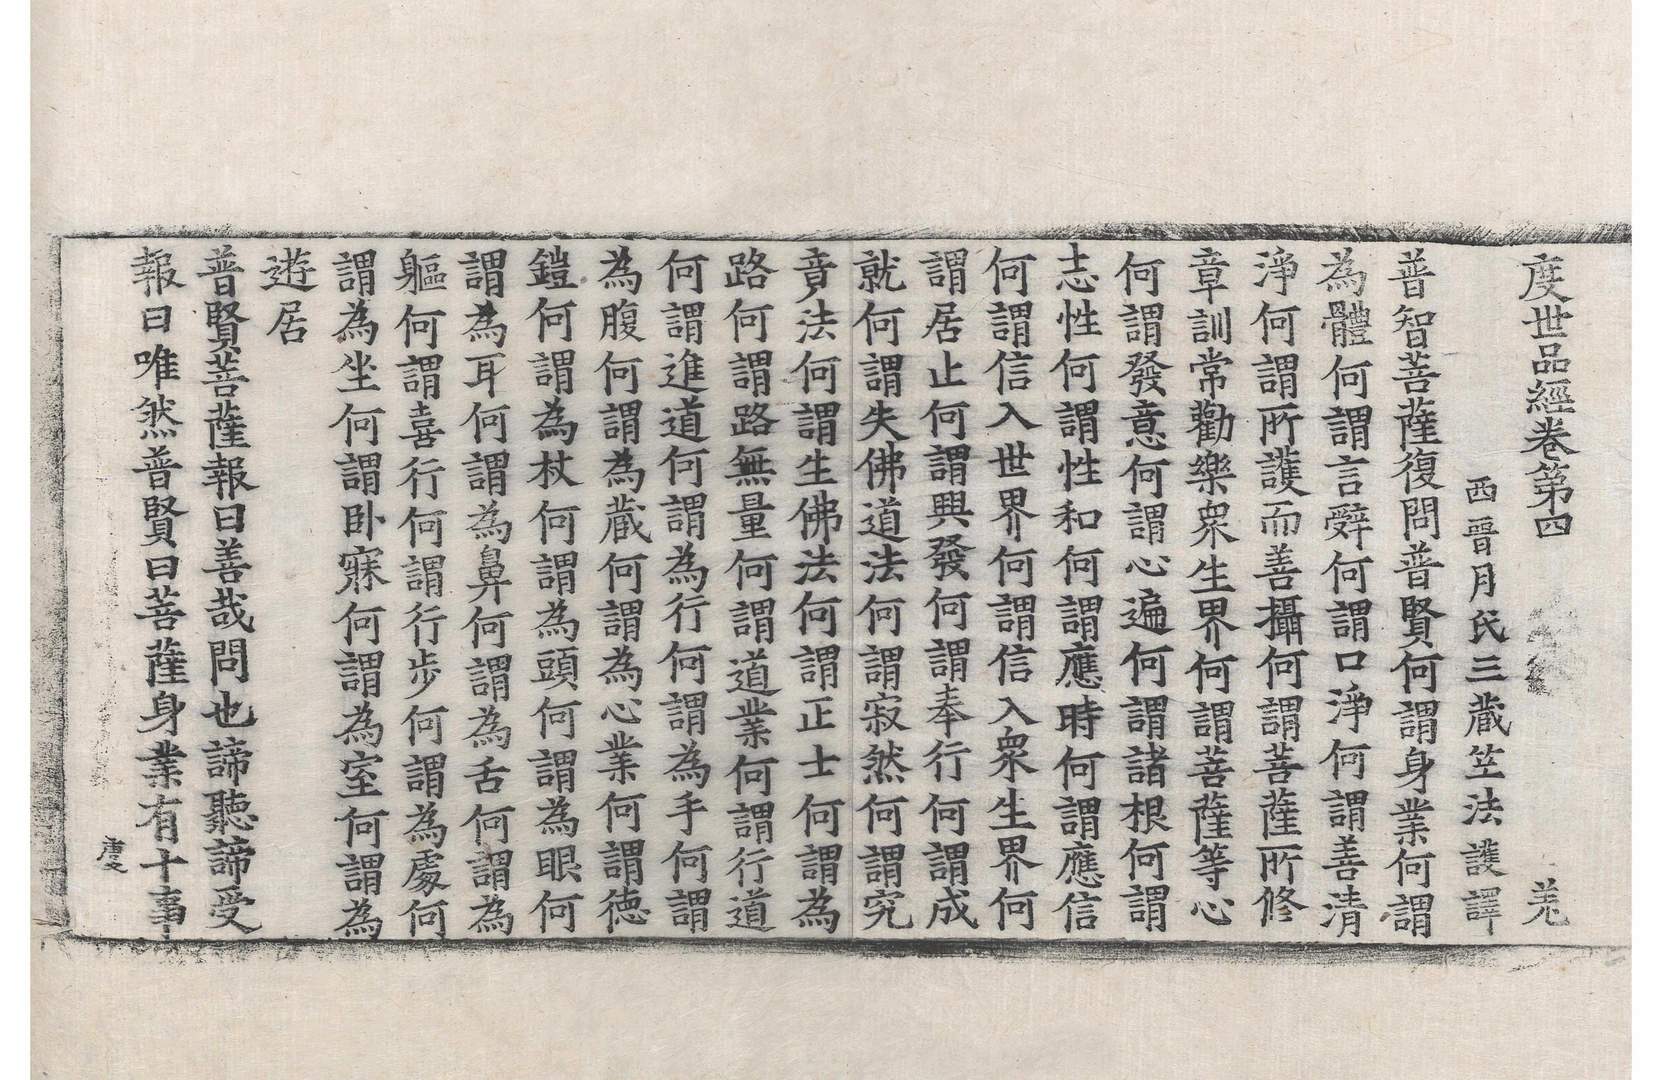 度世品經卷第四 羌
西晉月氏三藏竺法護譯
普智菩薩復問普賢何謂身業何謂
為體何謂言辭何謂口淨何謂善清
淨何謂所護而善攝何謂菩薩所修
章訓常勸樂眾生界何謂菩薩等心
何謂發意何謂心遍何謂諸根何謂
志性何謂性和何謂應時何謂應信
何謂信入世界何謂信入眾生界何
謂居止何謂興發何謂奉行何謂成
就何謂失佛道法何謂寂然何謂究
竟法何謂生佛法何謂正士何謂為
路何謂路無量何謂道業何謂行道
何謂進道何謂為行何謂為手何謂
為腹何謂為藏何謂為心業何謂德
鎧何謂為杖何謂為頭何謂為眼何
謂為耳何謂為鼻何謂為舌何謂為
軀何謂喜行何謂行步何謂為處何
謂為坐何謂臥寐何謂為室何謂為
遊居
普賢菩薩報曰善哉問也諦聽諦受
報曰唯然普賢曰菩薩身業有十事